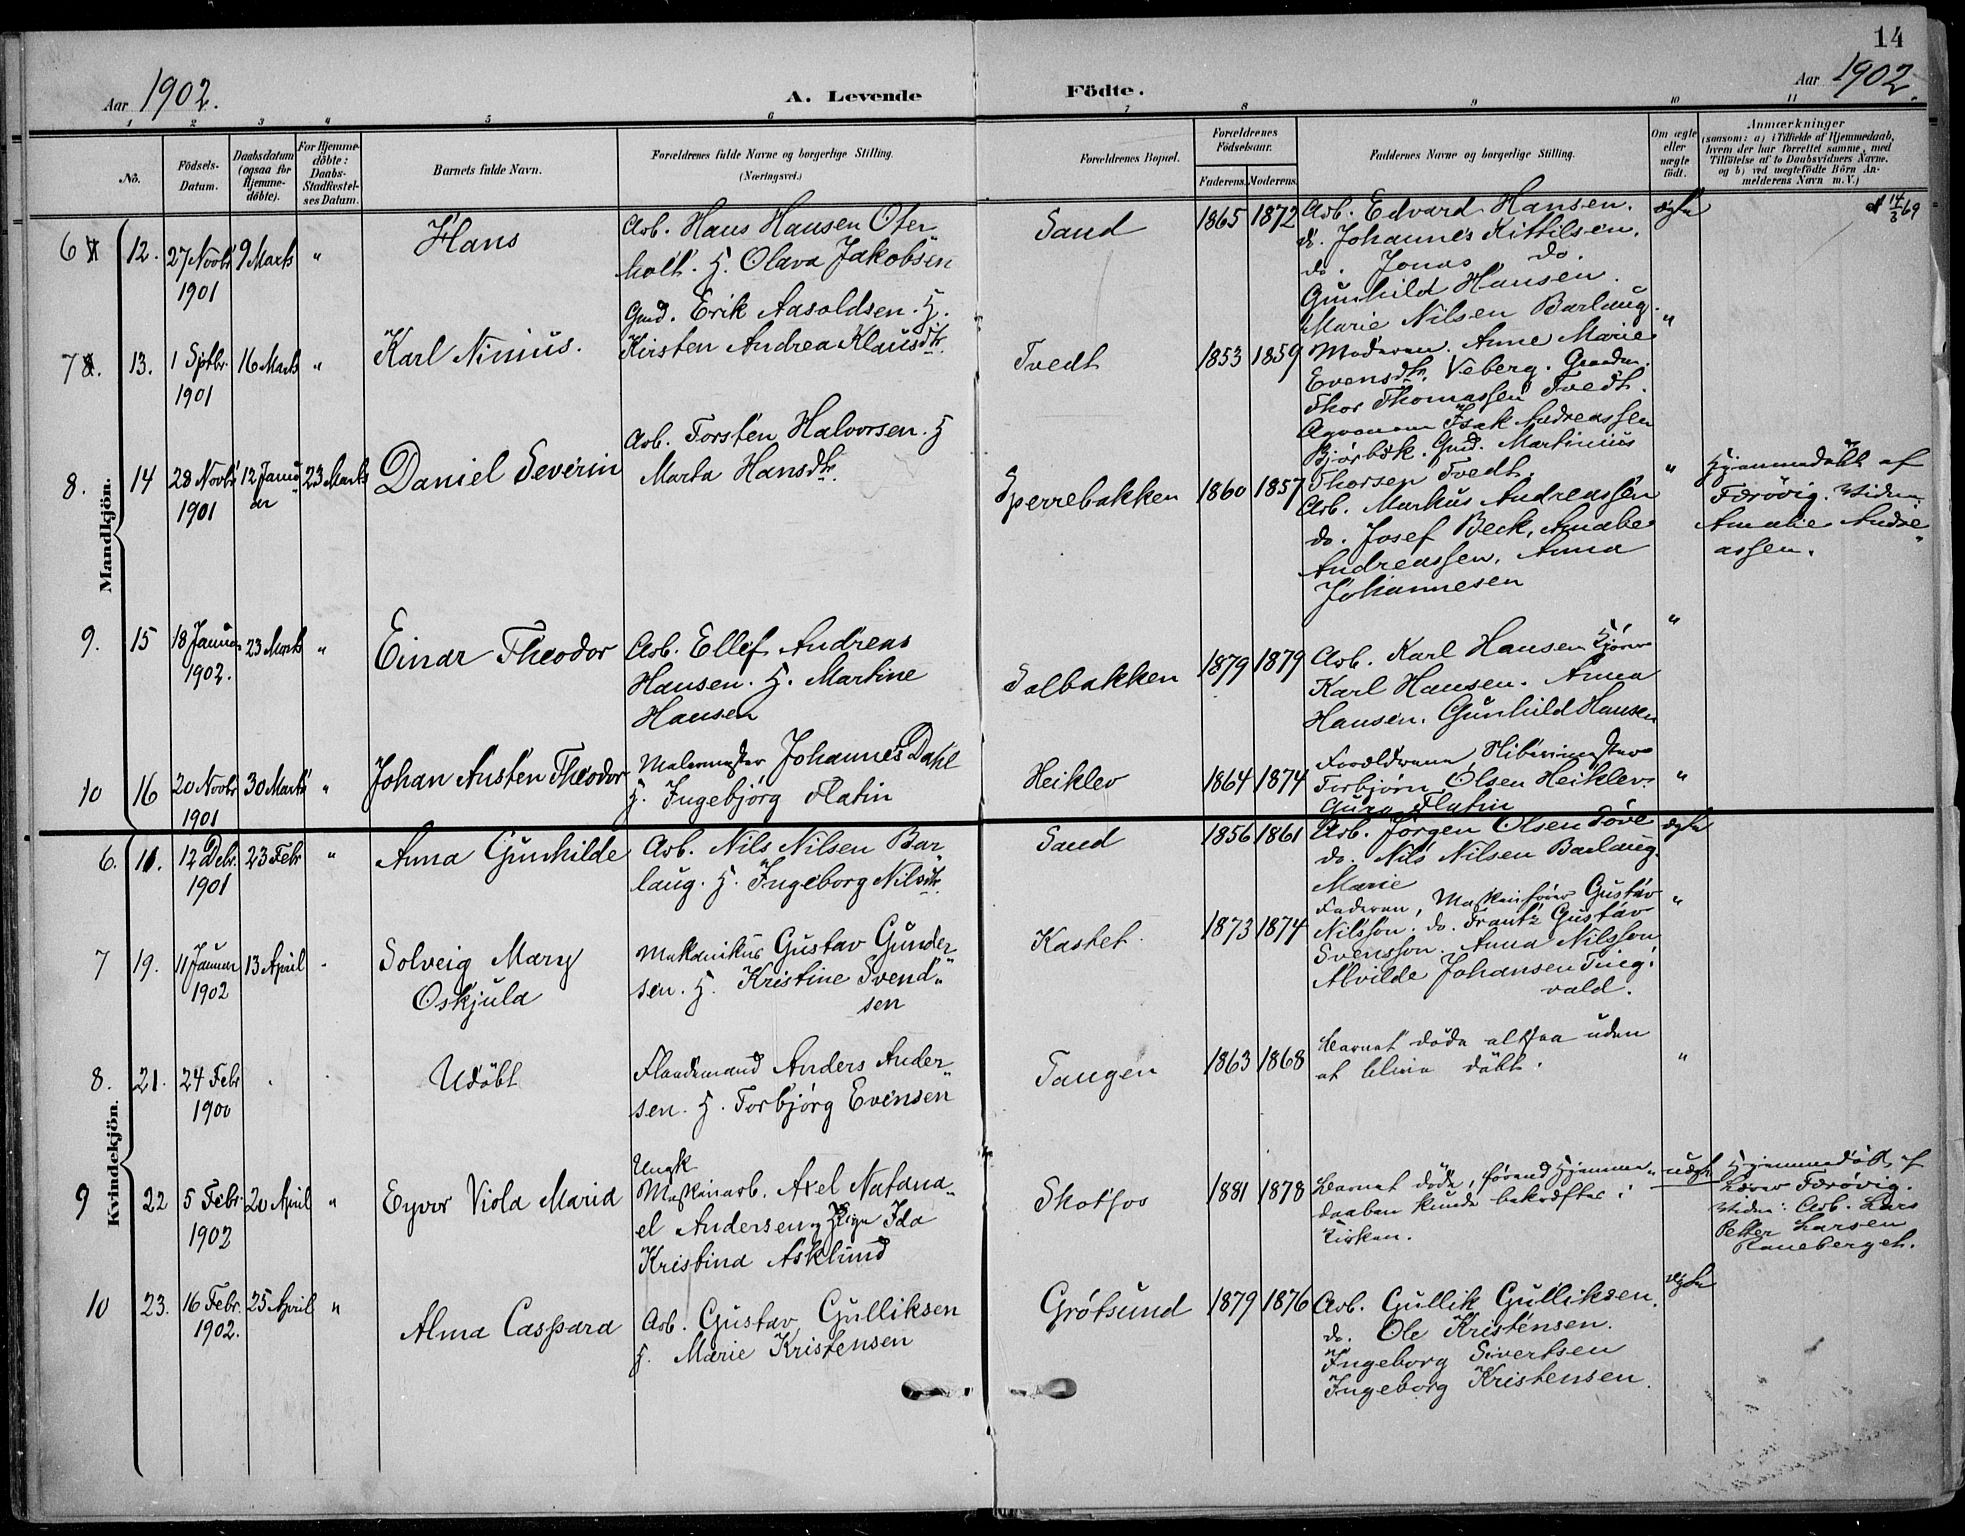 14
Aar 1902.
A. Levende Födte.
Aar 1902.
1 2 3 4 5 6 7 8 9 10 11
No.
Födsels-Datum.
Daabsdatum (ogsaa for Hjemme-døbte).
For Hjemme-döbte: Daabs-Stadfæstel-ses Datum.
Barnets fulde Navn.
Forældrenes fulde Navne og borgerlige Stilling.
(Næringsvei.)
Forældrenes Bopæl.
Forældrenes Födselsaar.
Faderens. Moderens.
Faddernes Navne og borgerlige Stilling.
Om ægte eller uægte födt.
Anmærkninger
(saasom: a) i Tilfælde af Hjemmedaab,
hvem der har forrettet samme, med
Tilföielse af to Daabsvidners Navne,
og b) ved uægtefödte Börn An-
melderens Navn m. V.)
Mandkjön.
6 12. 27 Novbr 1901 9 Marts " Hans
Arb. Hans Hansen Oter
holt. H. Olava Jakobsen
Sand 1865 1872
Arb. Edvard Hansen.
do. Johannes Kittilsen.
do. Jonas do.
Gunhild Hansen.
Marie Nilsen Barlaug.
ægte
14/3 69
7 13. 1 Sptbr. 1901 16 Marts " Karl Ninius.
Gmd. Erik Aasoldsen. H.
Kirsten Andrea Klausdtr.
Tvedt 1853 1859
Moderen. Anne Marie
Evensdtr. Veberg. Gaardm.
Thor Thomassen Tvedt.
Agronom Isak Andreassen
Bjørbæk. Gmd. Martinius
Thorsen Tvedt.
"
8. 14 28 Novbr 1901 12 Janu ar 23 Marts Daniel Severin
Arb. Torsten Halvorsen. H
Marta Hansdtr.
Sperrebakken 1860 1857
Arb. Markus Andreassen
do. Josef Beck, Amalie
Andreassen, Anna
Johannesen
"
Hjemmedöbt af
Færövig. Vidn.
Amalie Andre
assen.
9. 15 18 Januar 1902. 23 Marts " Einar Theodor
Arb. Ellef Andreas
Hansen. H. Martine
Hansen
Solbakken 1879 1879
Arb. Karl Hansen Kjører
Karl Hansen. Anna
Hansen. Gunhild Hansen
"
10 16 20 Novbr 1901 30 Marts " Johan Austen Theodor
Malermester Johannes Dahl
H. Ingebjørg Flatin
Heiklev 1864 1874
Forældrene,
Torbjørn Olsen Heiklev.
Guro Flatin
"
Kvindekjön.
6. 11. 12 Debr. 1901 23 Febr " Anna Gunhilde
Arb. Nils Nilsen Bar
laug. H. Ingeborg Nilsdtr.
Sand 1856 1861
Arb. Jørgen Olsen Tove
do. Nils Nilsen Barlaug.
Marie
ægte
7 19. 11 Januar 1902 13 April Solveig Mary
Oskjula
Mekanikus Gustav Gunder
sen. H. Kristine Svend"
sen
Kastet. 1873 1874
Faderen, Maskinfører Gustav
Nilsson. do. Frantz Gustav
Svensson. Anna Nilsson
Alvilde Johansen Ting.
vald.
"
8. 21. 24 Febr 1900 Udöbt
Flaademand Anders Ander
sen. H. Torbjørg Evensen
Tangen 1863 1868
Barnet døde altsaa uden
at blive döbt.
"
9 22 5 Febr. 1902 20 April " Eyvor Viola Maria
Ungk
Maskinarb. Axel Natana"
el Andersen og Pige Ida
Kristina Asklund
Skotfos 1881 1878
Barnet døde, førend Hjemme"
daaben kunde bekræftes i
Kirken.
uægte
Hjemmedöbt af
Lærer Færövig.
Vidn: Arb. Lars
Petter Larsen
Raneberget.
10 23. 16 Febr. 1902. 25 April " Alma Caspara
Arb. Gustav Gulliksen
H. Marie Kristensen
Grötsund 1879 1876
Arb. Gullik Gulliksen.
do. Ole Kristensen.
Ingeborg Sivertsen
Ingeborg Kristensen.
ægte